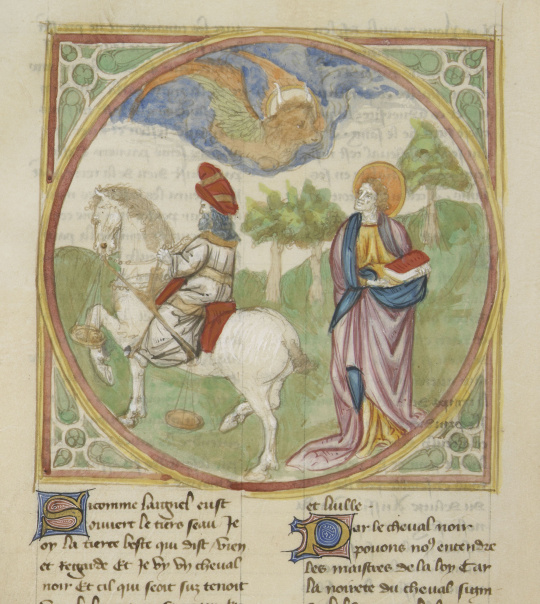 Sicomme laignel eust
ouvert le tiers seau Je
oy la tierce beste qui dist vien
et regarde Et Je vy vn cheval
noir Et cil qui seoit sus tenoit
et luille
Par le cheval noir
pouons no9 entendre
les maistres de la loy Car
la noirete du cheval